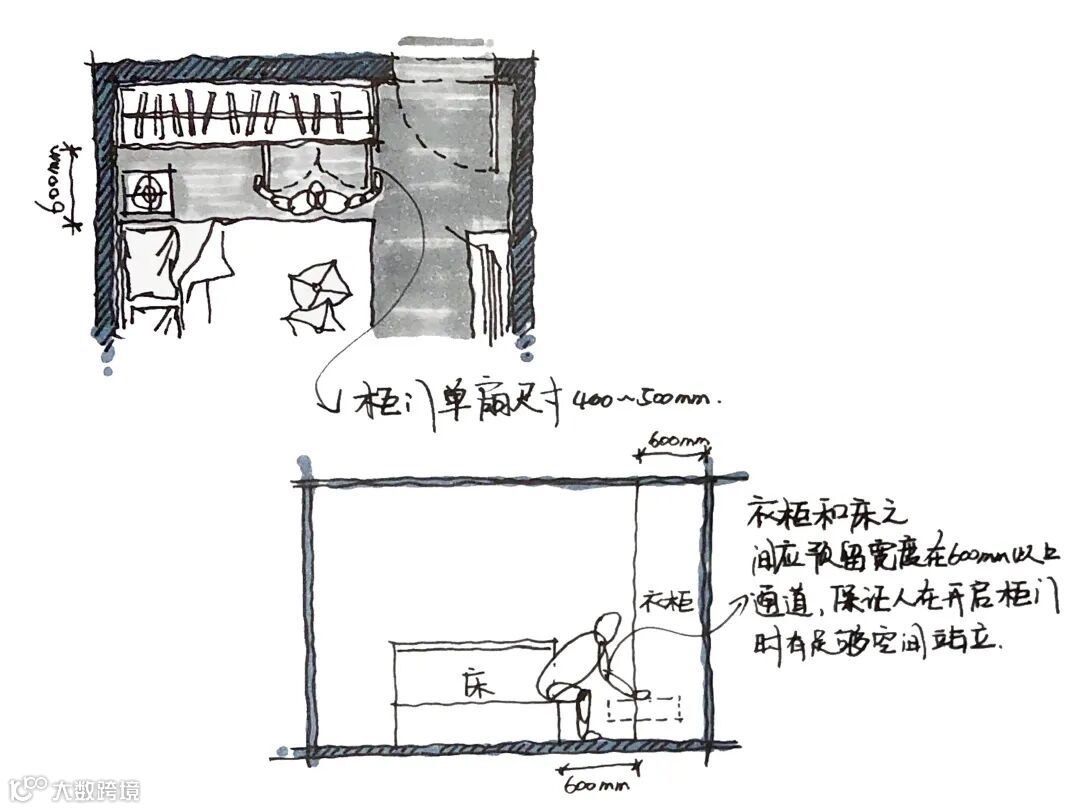 600mm
柜门单扇尺寸400~500mm.
600mm
衣柜和床之
间应预留宽度在600mm以上
通道，保证人在开启柜门
时有足够空间站立.
衣柜
床
600mm
大数跨境